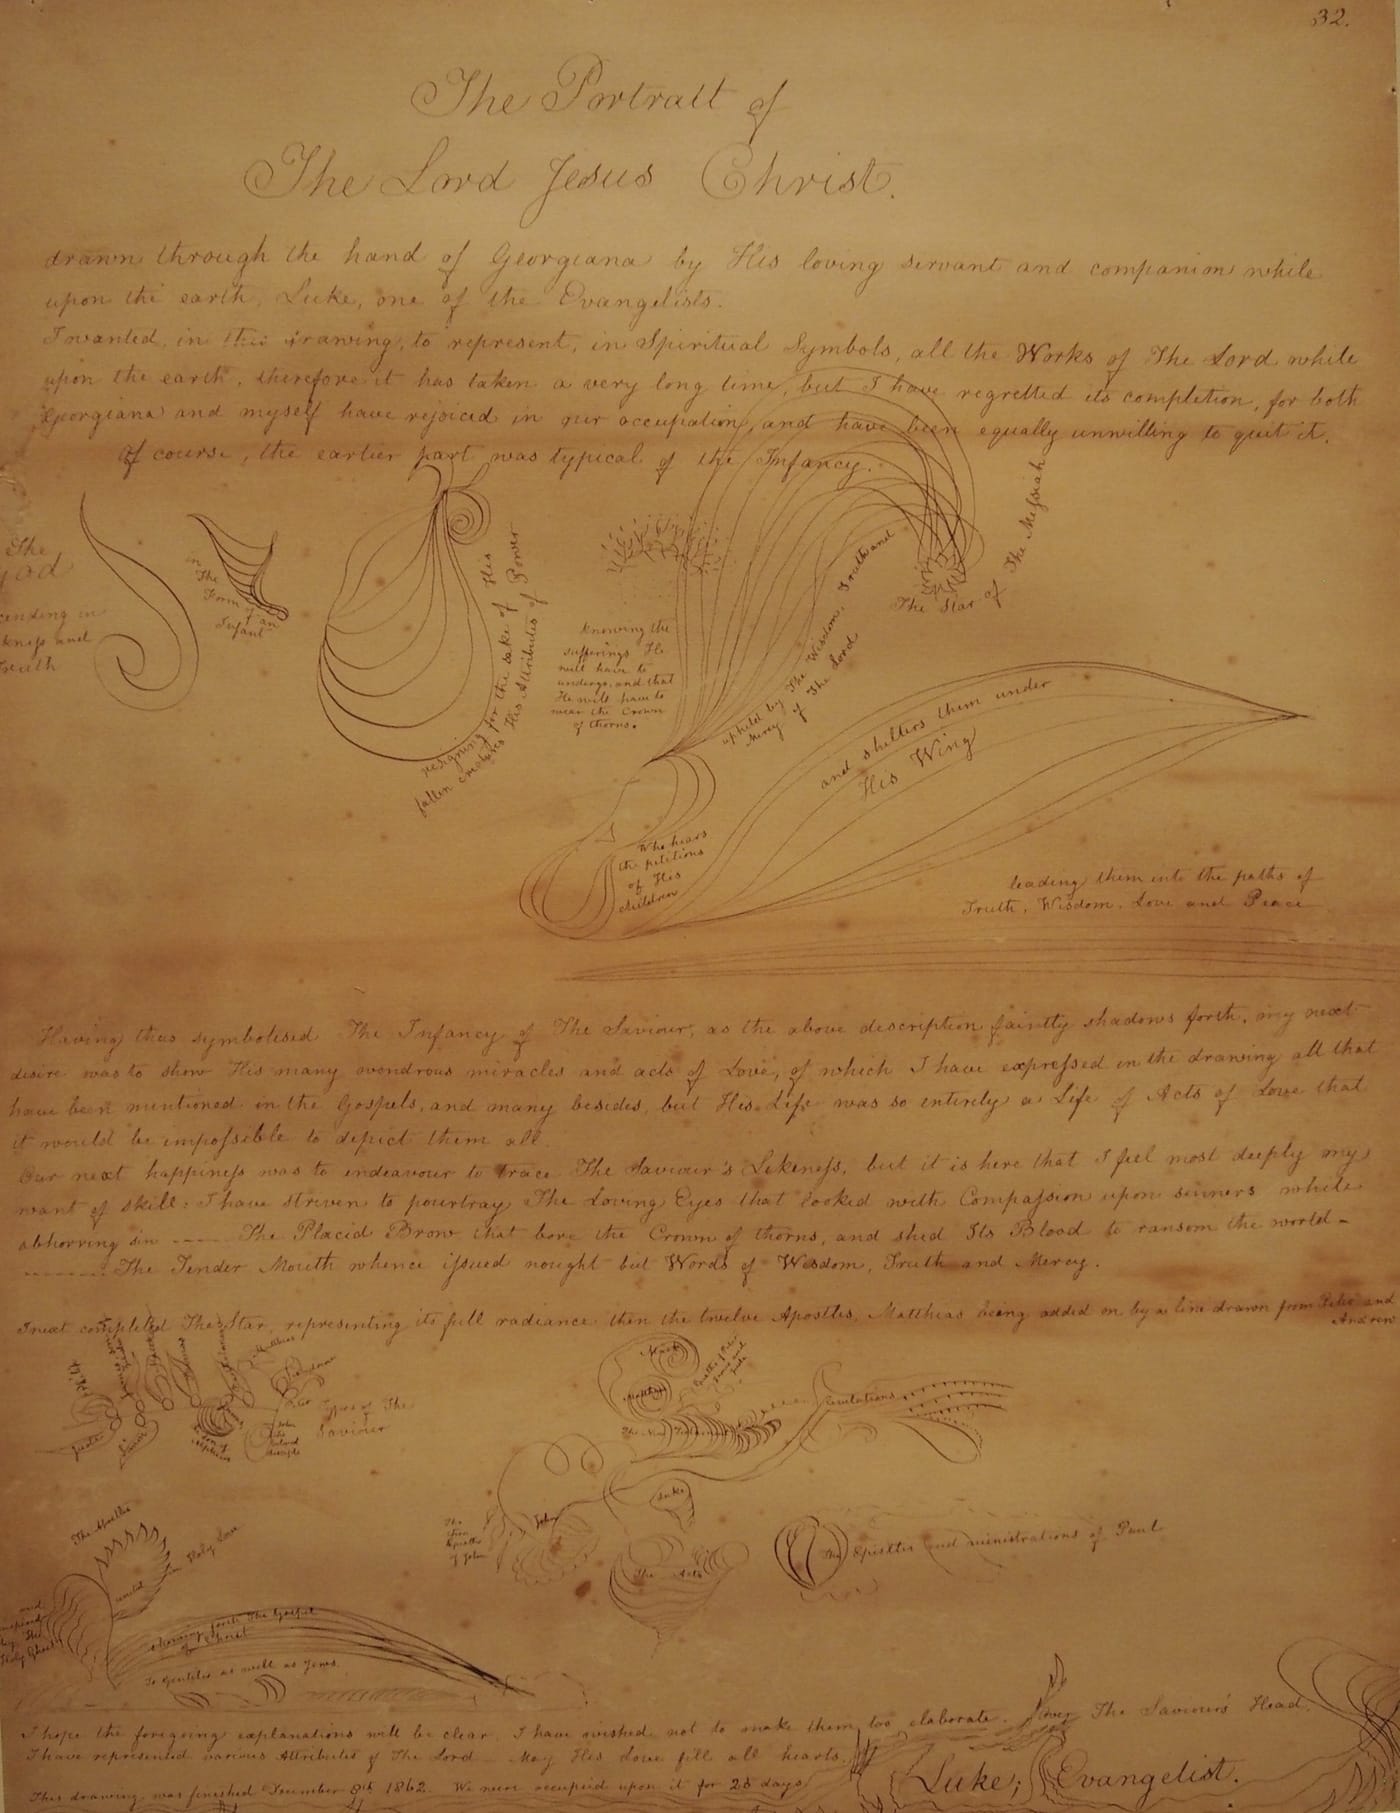 32.
The Portrait of
The Lord Jesus Christ.
drawn through the hand of Georgiana by His loving servant and companion while
upon the earth, Luke, one of the Evangelists.
I wanted, in this drawing, to represent, in Spiritual Symbols, all the Works of The Lord while
upon the earth, therefore it has taken a very long time, but I have regretted its completion, for both
Georgiana and myself have rejoiced in our occupation, and have been equally unwilling to quit it.
Of course, the earlier part was typical of the Infancy.
The
in
and
in
The
Form
of an
Infant
resigning for the sake of His
fallen creatures His Attributes of Power
knowing the
sufferings He
will have to
undergo, and that
He will have to
wear the Crown
of thorns.
upheld by The Wisdom, Truth and
Mercy of The Lord
The Star of The Messiah
Who hears
the petitions
of His
children
and shelters them under
His Wing
leading them into the paths of
Truth, Wisdom, Love and Peace
Having thus symbolised The Infancy of The Saviour, as the above description faintly shadows forth, my next
desire was to show His many wondrous miracles and acts of Love, of which I have expressed in the drawing all that
have been mentioned in the Gospels, and many besides, but His Life was so entirely a Life of Acts of Love that
it would be impossible to depict them all.
Our next happiness was to endeavour to trace The Saviour's Likeness, but it is here that I feel most deeply my
want of skill: I have striven to pourtray The Loving Eyes that looked with Compassion upon sinners while
abhorring sin ---- The Placid Brow that bore the Crown of thorns, and shed Its Blood to ransom the world -
-------- The Tender Mouth whence issued nought but Words of Wisdom, Truth and Mercy.
I next completed The Star, representing its full radiance then the twelve Apostles, Matthias being added on by a line drawn from Peter and
Andrew
Philip
Judas
Simon
Matthias
Peter
John
the
beloved
disciple
Types of The
Saviour
Mark
Matthew
The New Testament
Revelations
Luke
John
The
Epistles
of John
The Acts
The Epistles and ministrations of Paul
The Apostles
united
in Holy Love
and
by The
Holy Ghost
showing forth The Gospel
of Christ
To Gentiles as well as Jews.
I hope the foregoing explanations will be clear. I have wished not to make them too elaborate. Over The Saviour's Head
I have represented various Attributes of The Lord - May His Love fill all hearts.
This drawing was finished December 8th 1862. We were occupied upon it for 28 days
Luke; Evangelist.